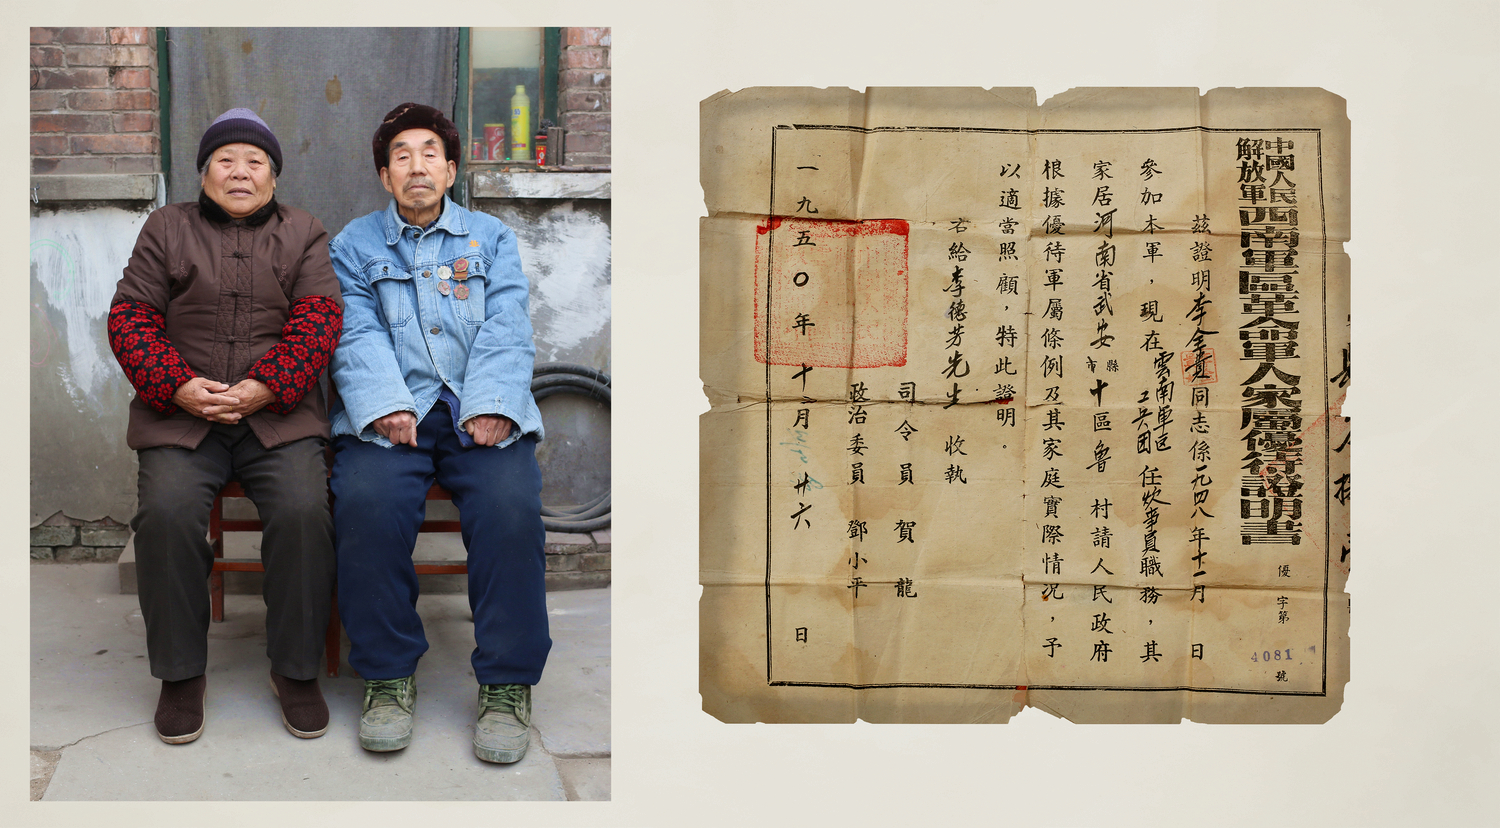 中國人民
解放軍
西南軍區革命軍人家屬優待證明書
優字第
4081
號
茲證明李全貴同志係一九四八年十一月 日
參加本軍，現在雲南軍區
工兵团任炊事員職務，其
家居河南省武安
縣
市
十區魯 村請人民政府
根據優待軍屬條例及其家庭實際情況，予
以適當照顧，特此證明。
右給李德芳先生 收執
司令員 賀 龍
政治委員 鄧小平
一九五〇年十二月廿六 日